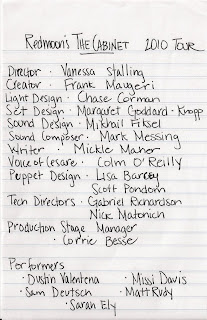 Redmoon's The CABINET 2010 Tour
Director · Vanessa Stalling
Creator · Frank Maugeri
Light Design · Chase Corman
Set Design · Margaret Goddard-Knopp
Sound Design · Mikhail Fiksel
Sound Composer · Mark Messing
Writer · Mickle Maher
Voice of Cesare · Colm O'Reilly
Puppet Design · Lisa Barcy
Scott Pondrom
Tech Directors · Gabriel Richardson
Nick Matonich
Production Stage Manager
· Corrie Besse
Performers
· Dustin Valenta · Missi Davis
· Sam Deutsch · Matt Rudy
· Sarah Ely